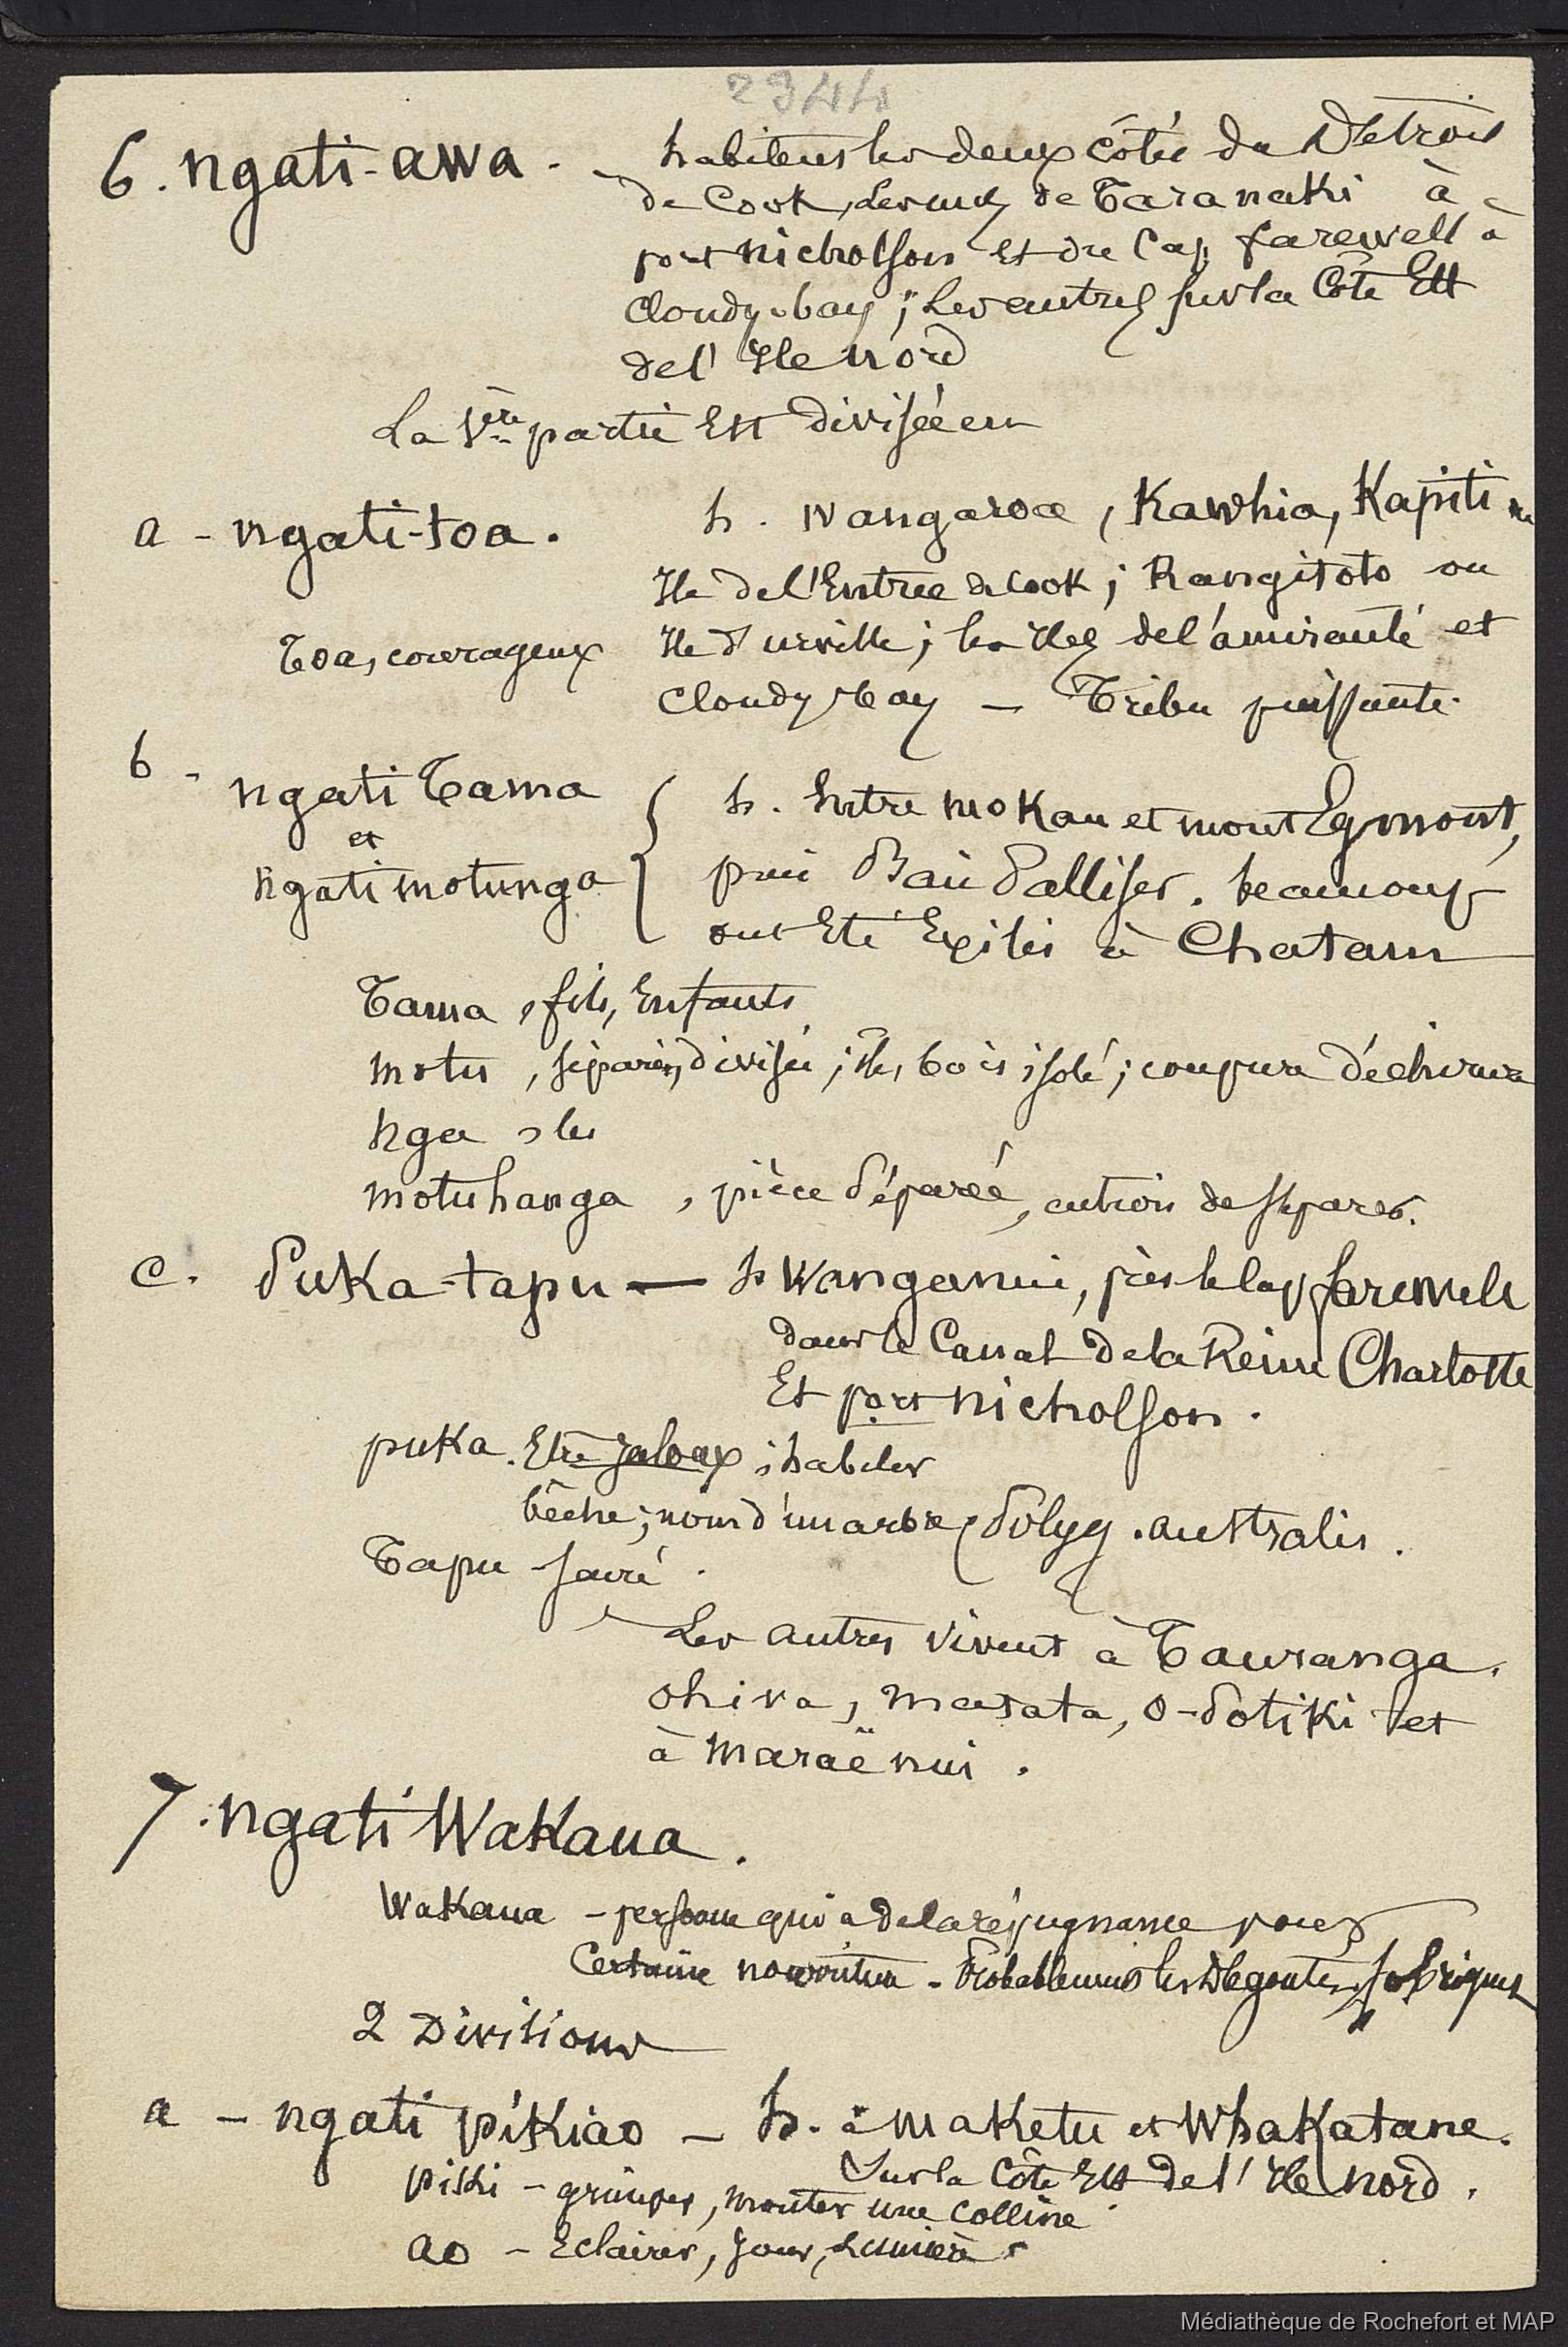 2944
6. ngati-awa. - habitent les deux côtés du Détroit
de Cook, les uns de Taranaki à
port nicholson et du Cap farewell à
Cloudy-bay ; les autres sur la Côte Est
de l'Ile nord
La 1ère partie Est divisée en
a - ngati-toa. h. Wangaroa, Kawhia, Kapiti ou
Ile de l'Entrée de Cook ; Rangitoto ou
Toa, courageux Ile d'urville ; les Iles de l'amirauté et
Cloudy bay - Tribu puissante.
b - ngati Tama h. Entre moKau et mont Egmont,
et
ngati motunga puis Baie Palliser. beaucoup
ont Eté Exilés à Chatam
Tama, fils, Enfants
motu, séparés, divisés ; île, bois isolé ; coupure déchirure
nga, les
motuhanga, pièce séparée, action de séparer.
c. PuKa-tapu - h Wanganui, près le Cap farewell
dans le Canal de la Reine Charlotte
Et port nicholson.
puKa. Etre Jaloux ; habiter
bêche ; nom d'un arbre, Polyg. australis.
Tapu - sacré.
Les autres vivent à Tauranga.
ohiva, matata, o-Potiki et
à maraënui.
7. ngati WaKaua.
WaKaua - personne qui a de la répugnance pour
Certaine nourriture - Probablement les Dégoutés,
2 Divisions
a - ngati piKiao - h. à maKetu et WhaKatane.
Sur la Côte Est de l'Ile nord.
piki - grimper, monter une colline
ao - Eclairer, Jour, Lumière
Médiathèque de Rochefort et MAP